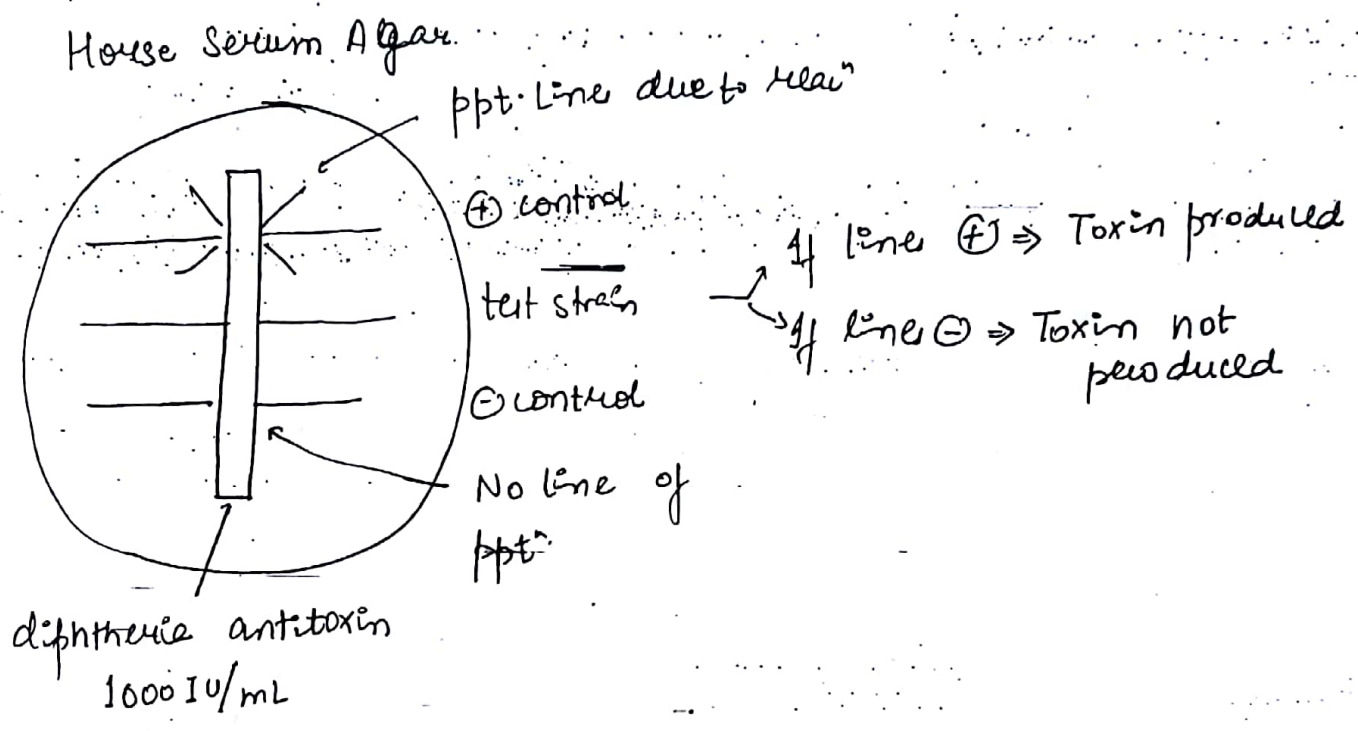 Horse Serum Agar.
ppt. Line due to reacⁿ
⊕ control
If line ⊕ ⇒ Toxin produced
test strain
If line ⊖ ⇒ Toxin not
produced
⊖ control
No line of
pptⁿ
diphtherie antitoxin
1000 IU/mL